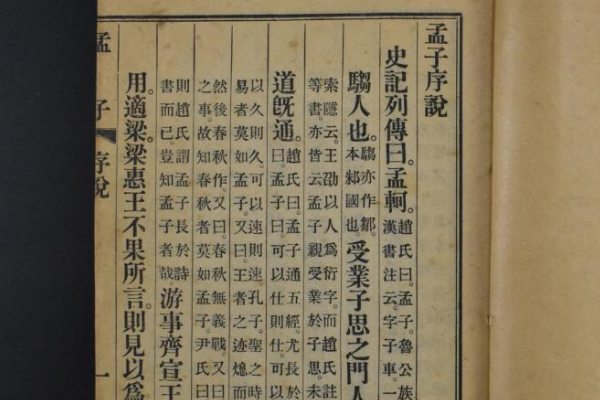 孟子序說
史記列傳曰。孟軻。
趙氏曰。孟子。魯公族
漢書注云。字子車。一
騶人也。
騶亦作鄒。
本邾國也。
受業子思之門人
索隱云。王劭以人爲衍字。而趙氏註
等書。亦皆云孟子親受業於子思。未
道旣通。
趙氏曰。孟子通五經。尤長於
曰。孟子曰。可以仕則仕。可以
以久則久。可以速則速。孔子。聖之時
易者莫如孟子。又曰。王者之迹熄而
然後春秋作。又曰春秋無義戰。又曰
之事。故知春秋者莫如孟子。尹氏曰
則趙氏謂孟子長於詩
書而已。豈知孟子者哉
游事齊宣王
用。適梁。梁惠王不果所言。則見以爲
孟子 序說 一